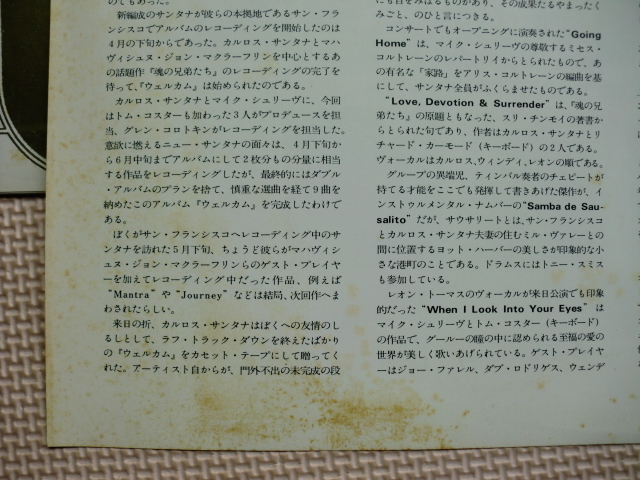 のでもあった。
　新編成のサンタナが彼らの本拠地であるサン・フラ
ンシスコでアルバムのレコーディングを開始したのは
４月の下旬からであった。カルロス・サンタナとマハ
ヴィシュヌ・ジョン・マクラーフリンを中心とするあ
の話題作『魂の兄弟たち』のレコーディングの完了を
待って、『ウェルカム』は始められたのである。
　カルロス・サンタナとマイク・シュリーヴに、今回
はトム・コスターも加わった３人がプロデュースを担
当、グレン・コロトキンがレコーディングを担当した。
意欲に燃えるニュー・サンタナの面々は、４月下旬か
ら６月中旬までアルバムにして２枚分もの分量に相当
する作品をレコーディングしたが、最終的にはダブル
・アルバムのプランを捨て、慎重な選曲を経て９曲を
納めたこのアルバム『ウェルカム』を完成したわけで
ある。
　ぼくがサン・フランシスコへレコーディング中のサ
ンタナを訪れた５月下旬、ちょうど彼らがマハヴィシ
ュヌ・ジョン・マクラーフリンらのゲスト・プレイヤ
ーを加えてレコーディング中だった作品、例えば
“Mantra”や“Journey”などは結局、次回作へま
わされたらしい。
　来日の折、カルロス・サンタナはぼくへの友情のし
るしとして、ラフ・トラック・ダウンを終えたばかり
の『ウェルカム』をカセット・テープにして贈ってく
れた。アーティスト自からが、門外不出の未完成の段
にも目をみはるものがあり、その成果たるやまったく
みごと、のひと言につきる。
　コンサートでもオープニングに演奏された“Going
Home”は、マイク・シュリーヴの尊敬するミセス・
コルトレーンのレパートリイからとられたもので、あ
の有名な「家路」をアリス・コルトレーンの編曲を基
にして、サンタナ全員がふくらませたものである。
　“Love, Devotion & Surrender”は、『魂の兄
弟たち』の原題ともなった、スリ・チンモイの著書か
らとられた句であり、作者はカルロス・サンタナとリ
チャード・カーモード（キーボード）の２人である。
ヴォーカルはカルロス、ウィンディ、レオンの順である。
　グループの異端児、ティンバル奏者のチェピートが
持てる才能をここでも発揮して書きあげた傑作が、イ
ンストゥルメンタル・ナムバーの“Samba de Sau-
salito”だが、サウサリートとは、サン・フランシスコ
とカルロス・サンタナ夫妻の住むミル・ヴァレーとの
間に位置するヨット・ハーバーの美しさが印象的な小
さな港町のことである。ドラムスにはトニー・スミス
も参加している。
　レオン・トーマスのヴォーカルが来日公演でも印象
的だった“When I Look Into Your Eyes”は
マイク・シュリーヴとトム・コスター（キーボード）
の作品で、グールーの瞳の中に認められる至福の愛の
世界が美しく歌いあげられている。ゲスト・プレイヤ
ーはジョー・ファレル、ダグ・ロドリゲス、ウェンデ